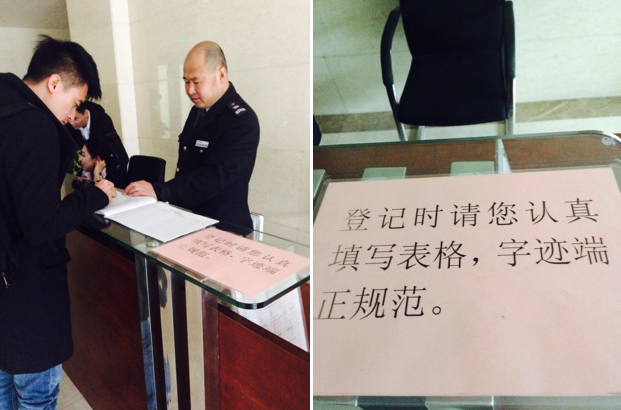 登记时请您认真
填写表格，字迹端
正规范。
登记时请您认真
填写表格，字迹端
正规范。